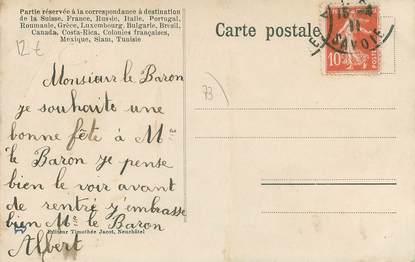 Partie réservée à la correspondance à destination
de la Suisse, France, Russie, Italie, Portugal,
Roumanie, Grèce, Luxembourg, Bulgarie, Brésil,
Canada, Costa-Rica, Colonies françaises,
Mexique, Siam, Tunisie
12€
Carte postale
10
SAVOIE
73
Monsieur le Baron
je souhaite une
bonne fête à Mr
le Baron je pense
bien le voir avant
de rentré j'embrasse
bien Mr le Baron
Editeur Timothée Jacot, Neuchâtel
Albert